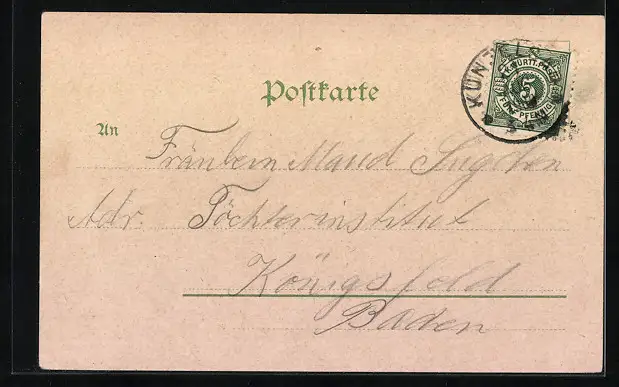 Postkarte
K. WÜRTT. POST
5
FÜNF PFENNIG
KÜNZELS
An
Fräulein Maud Sugden
Adr. Töchterinstitut
Königsfeld
Baden